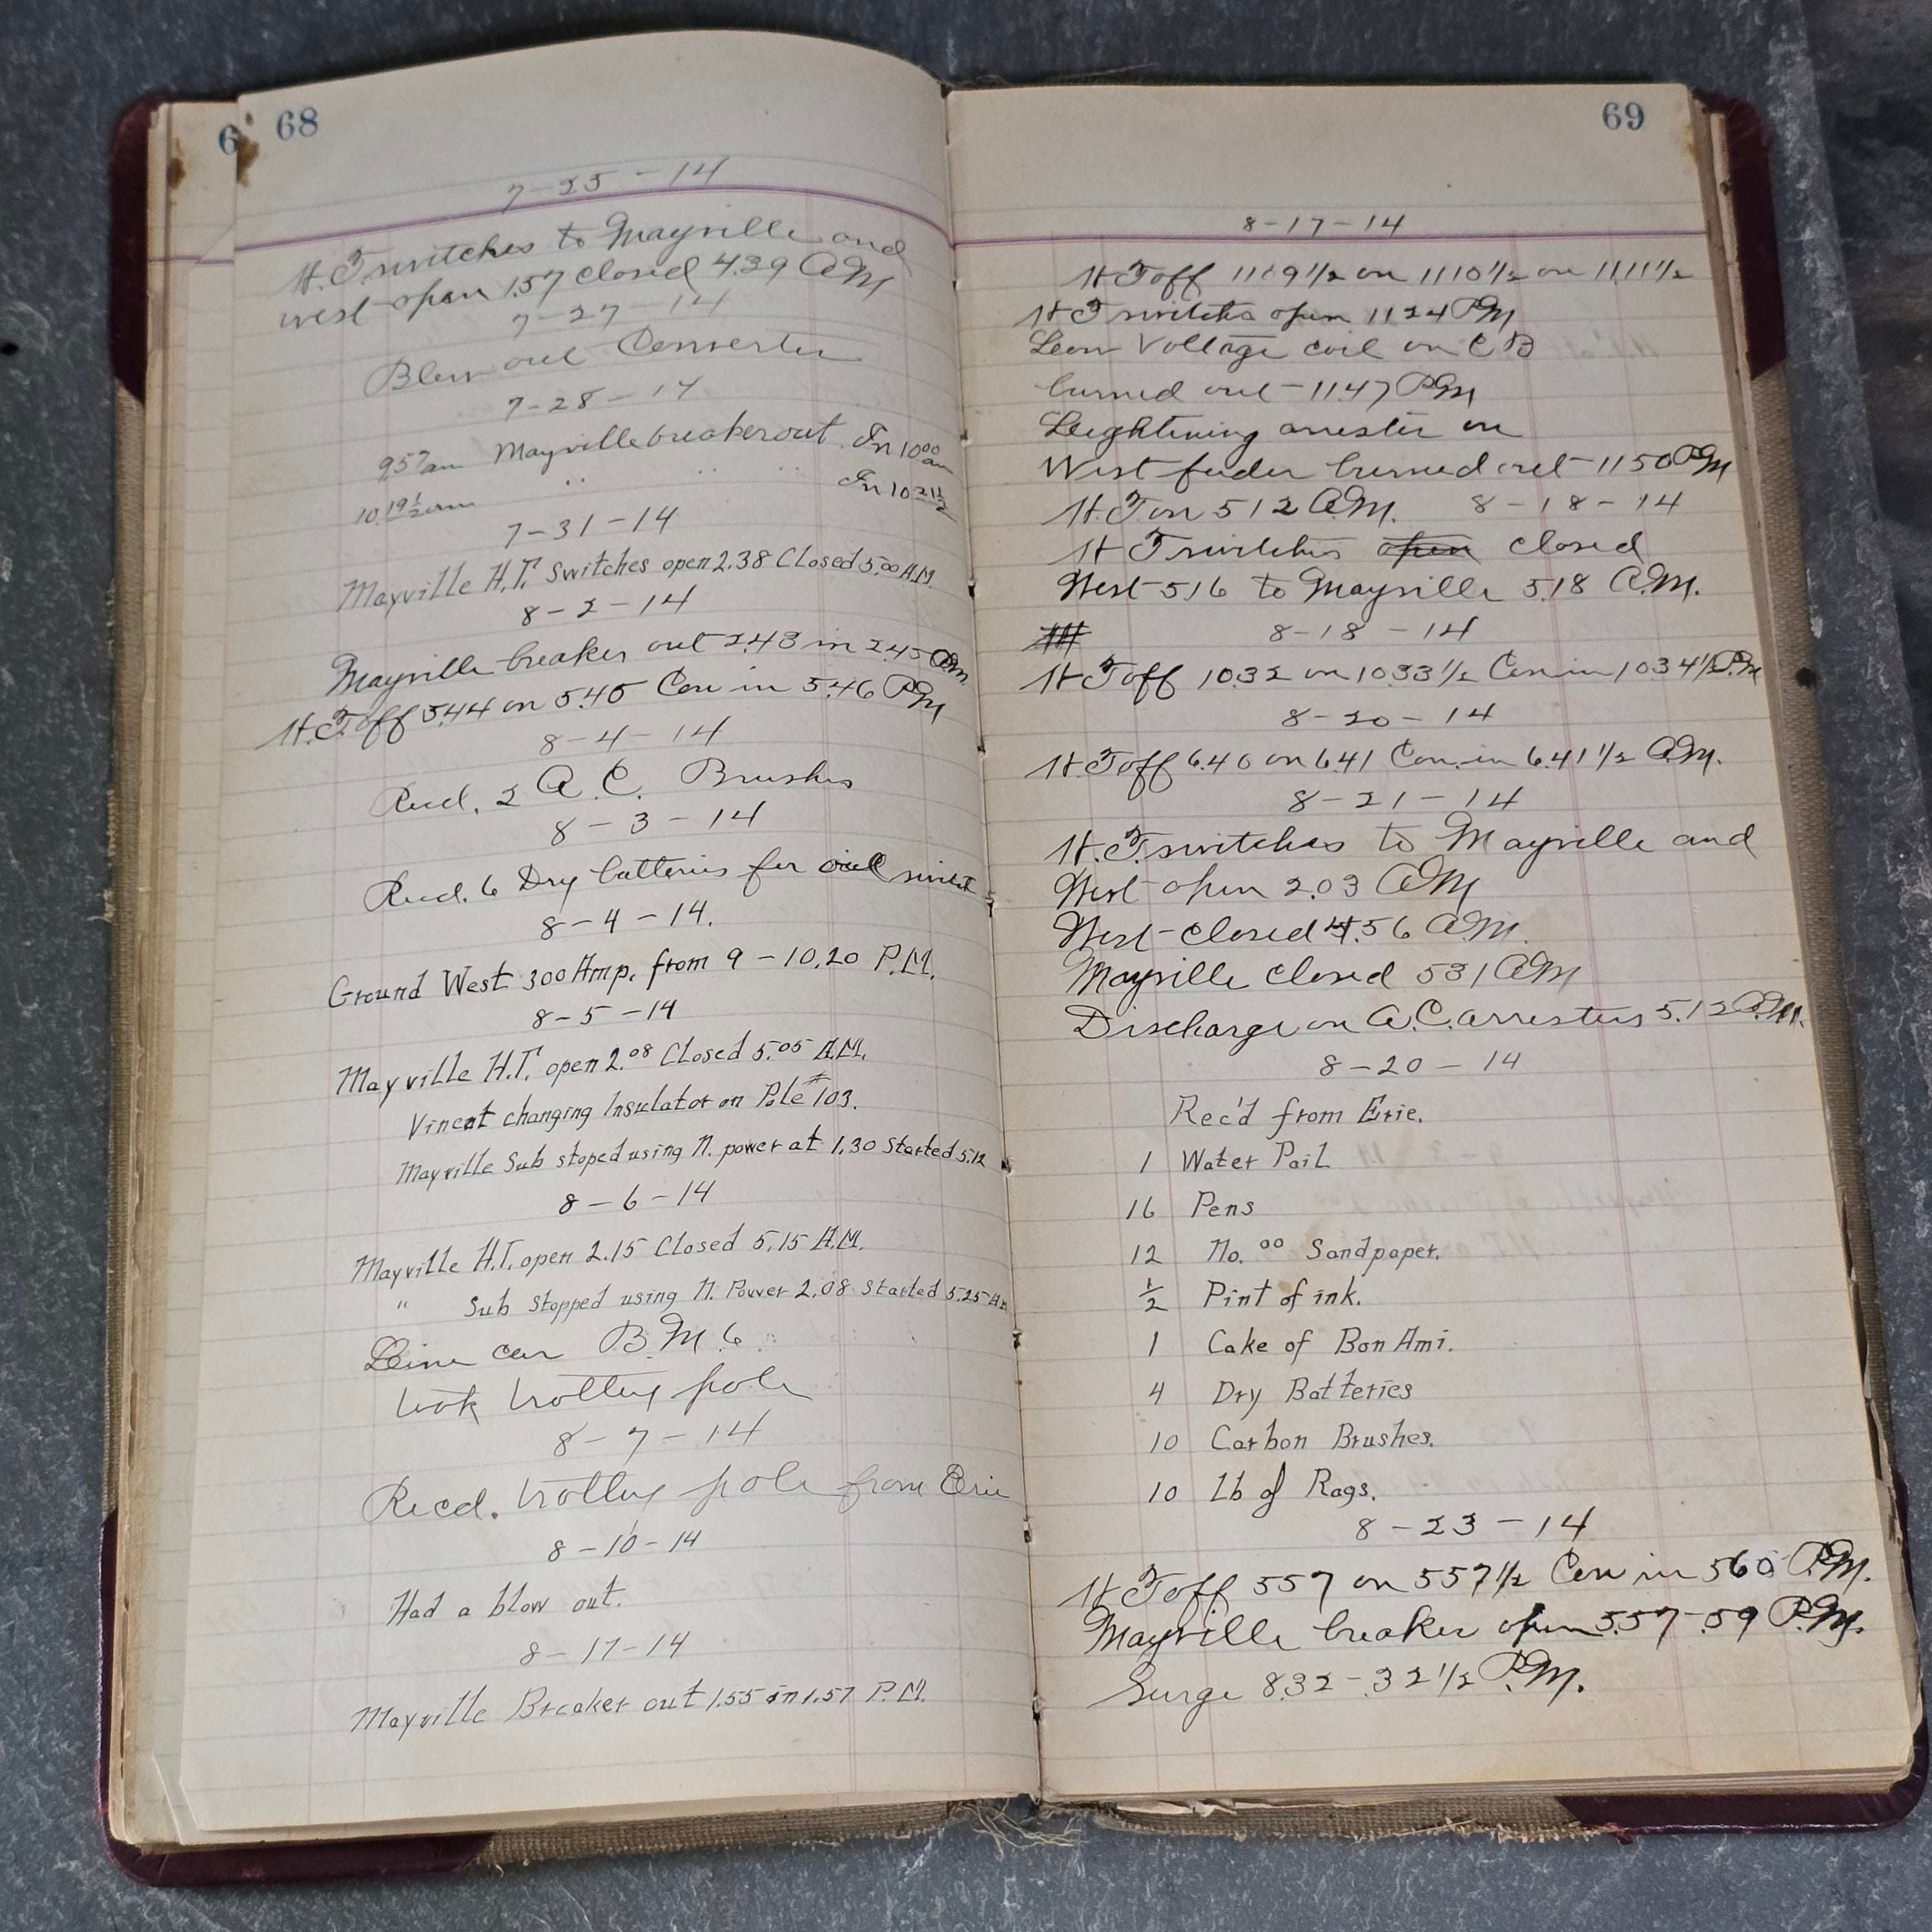 6
68
7-25-14
H.T. switches to Mayville and
west open 1.57 closed 4.39 A.M
7-27-14
Blew out Converter
7-28-14
9.57 am Mayville breaker out In 10 00 am
10.19 1/2 am " " " In 10 21 1/2
7-31-14
Mayville H.T. Switches open 2.38 Closed 5.00 A.M.
8-2-14
Mayville breaker out 2.43 in 2.45 A.M.
H.T. off 5.44 on 5.45 Con in 5.46 P.M
8-4-14
Recd. 2 A.C. Brushes
8-3-14
Recd. 6 Dry batteries for
8-4-14.
Ground West 300 Amp. from 9 - 10.20 P.M.
8-5-14
Mayville H.T. open 2.08 Closed 5.05 A.M.
Vincent changing Insulator on Pole #103.
Mayville Sub stoped using N. power at 1.30 Started 5.12
8-6-14
Mayville H.T. open 2.15 Closed 5.15 A.M.
" Sub Stopped using N. Power 2.08 Started 5.25 A.M.
Line car B.M. 6
took trolley pole
8-7-14
Recd. trolley pole from Erie
8-10-14
Had a blow out.
8-17-14
Mayville Breaker out 1.55 in 1.57 P.M.
69
8-17-14
H T off 11.09 1/2 on 11.10 1/2 on 11.11 1/2
H T switches open 11 24 P.M
Low Voltage coil on C B
burned out - 11.47 P.M
Leightening arrester on
West feeder burned out - 11 50 P.M
H.T. on 5 12 A.M. 8-18-14
H T switches open closed
West 5.16 to Mayville 5.18 A.M.
8-18-14
H T off 10.32 on 10.33 1/2 Con in 10 34 1/2 P.M
8-20-14
H T off 6.40 on 6.41 Con. in 6.41 1/2 A.M.
8-21-14
H.T. switches to Mayville and
West open 2.03 A.M
West - closed 4.56 A.M.
Mayville closed 531 A.M
Discharge on A.C. arresters 5.12 A.M.
8-20-14
Rec'd from Erie.
1 Water Pail
16 Pens
12 No. 00 Sandpaper.
1/2 Pint of ink.
1 Cake of Bon Ami.
4 Dry Batteries
10 Carbon Brushes.
10 Lb of Rags.
8-23-14
H T off 557 on 557 1/2 Con in 560 P.M.
Mayville breaker open 5.57-59 P.M.
Surge 8.32-32 1/2 P.M.